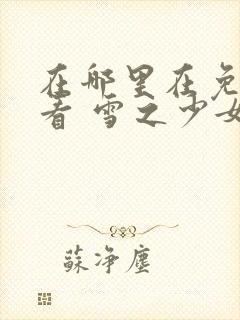 在哪里在免
看 雪之少女
蘇净塵